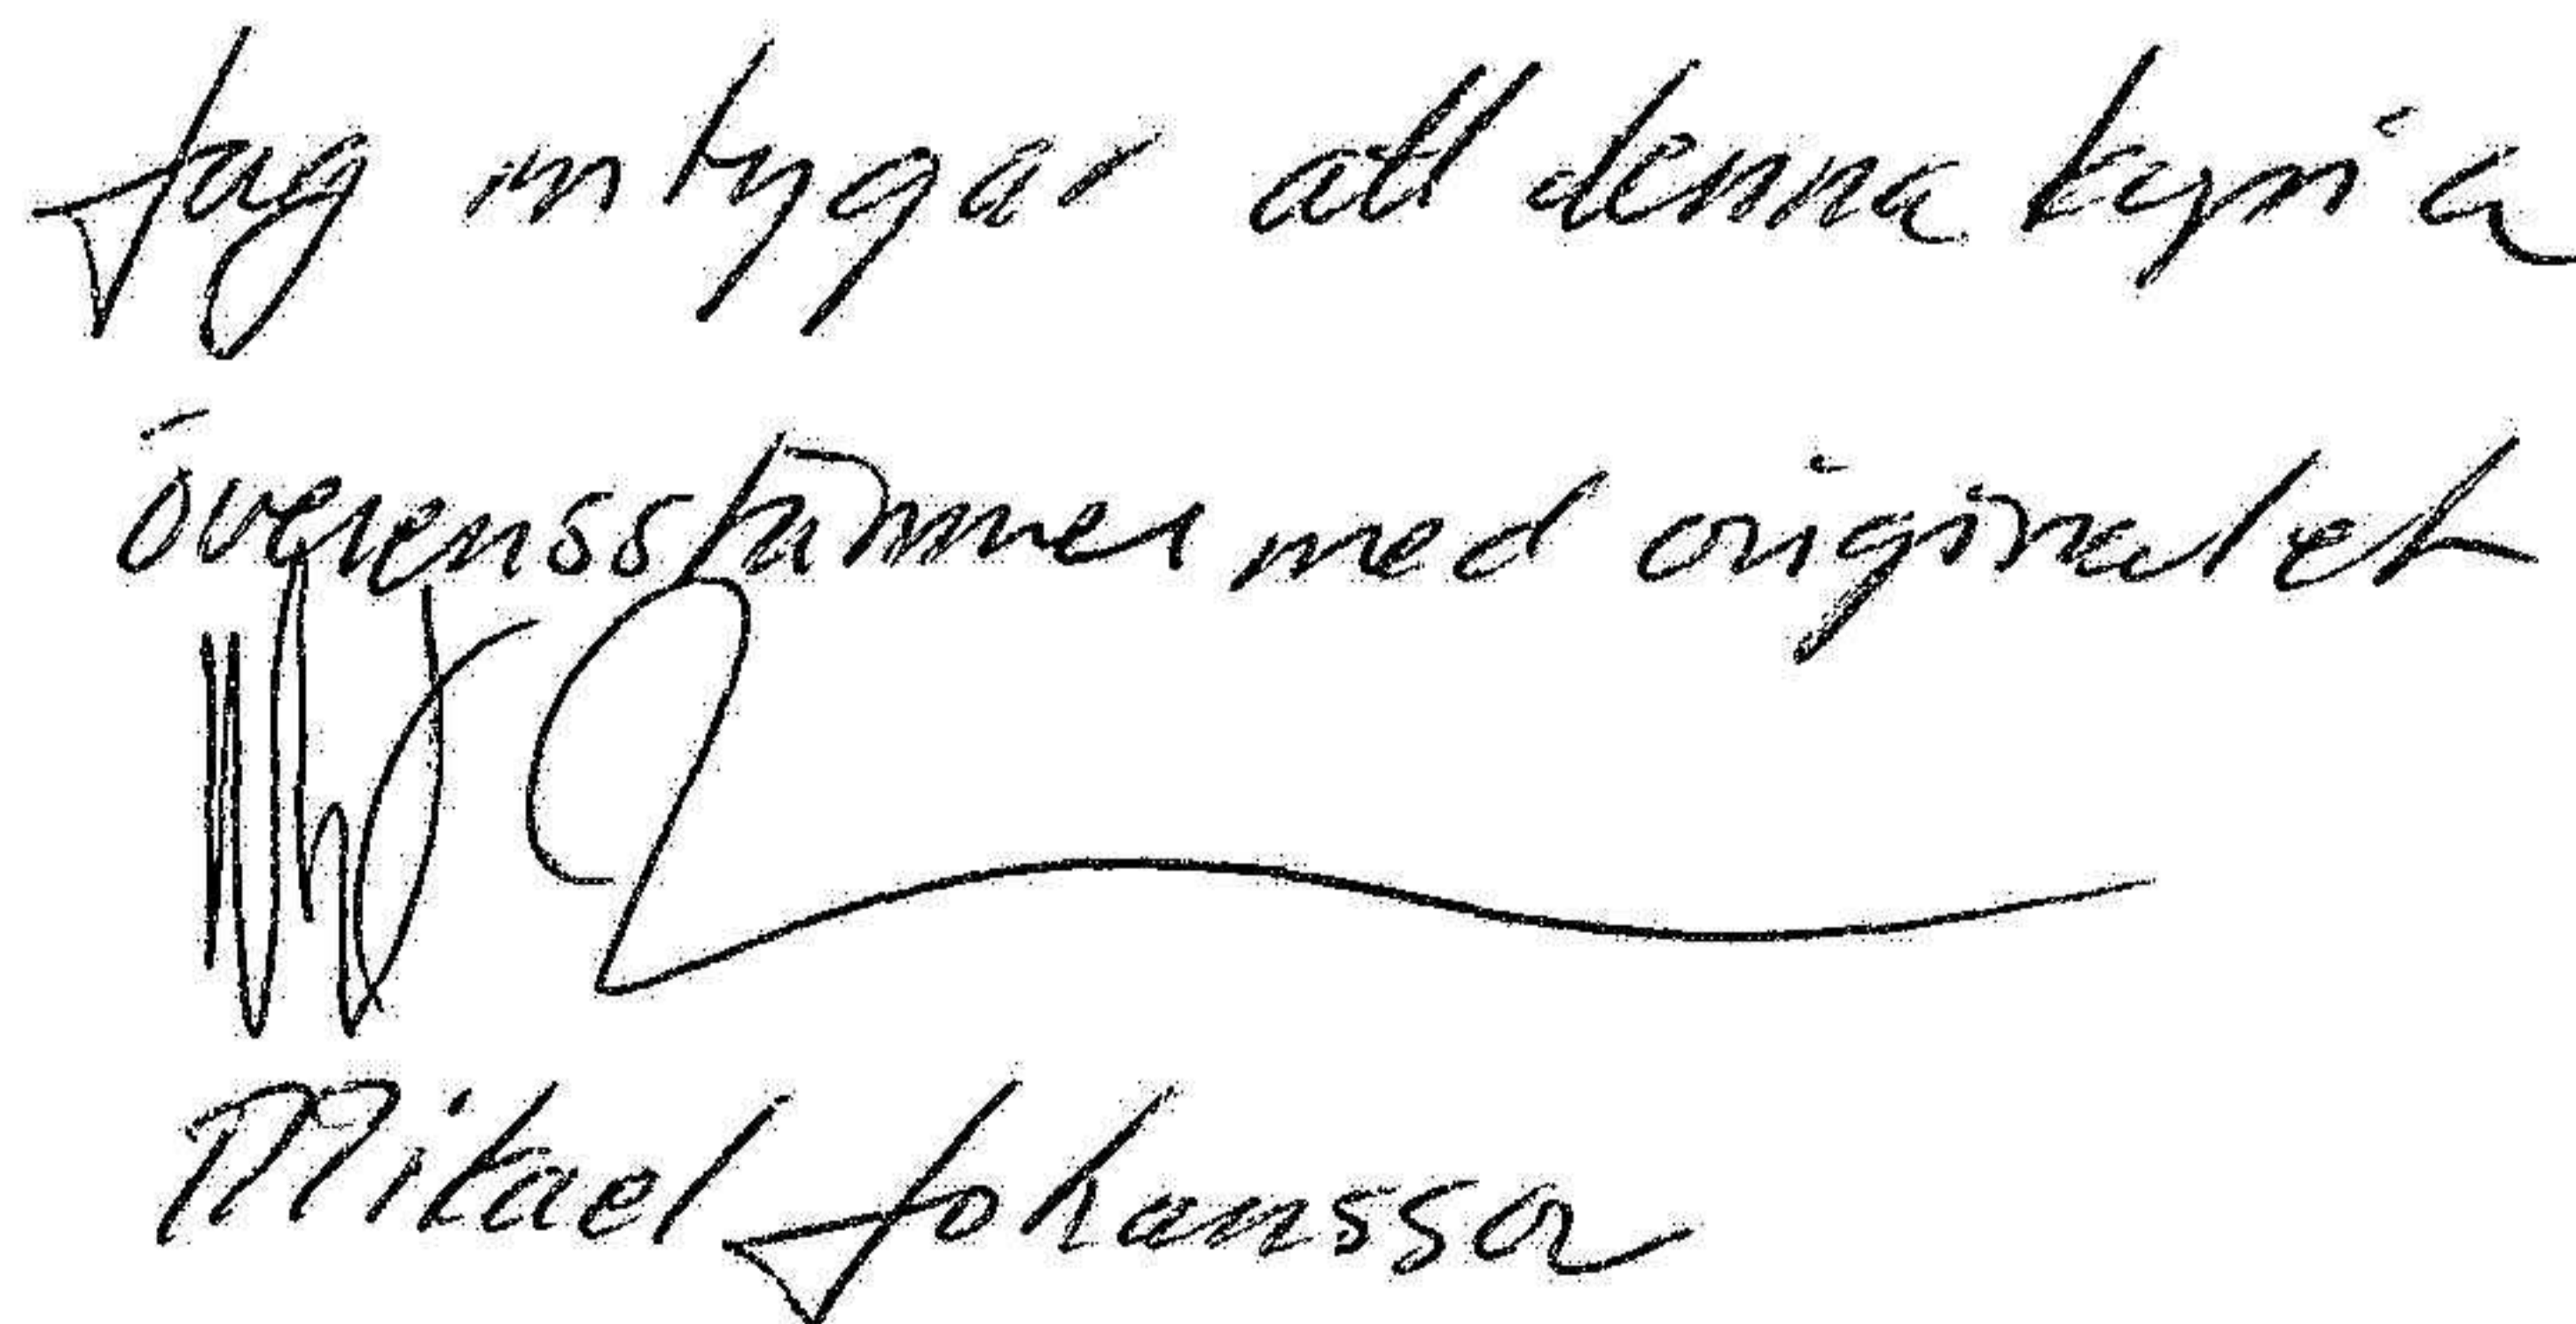 Jag intygar att denna kopia
överensstämmer med originalet
Mikael Johansson